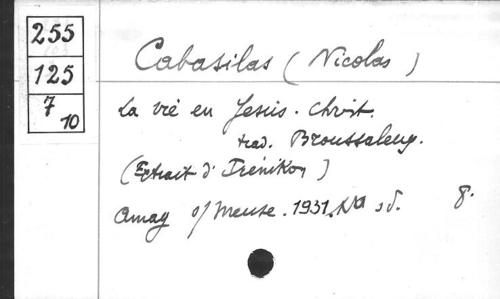 255
125
7
10
Cabasilas (Nicolas)
La vie en Jésus-Christ.
trad. Broussaleux.
(Extrait d'Irénikon)
Amay s/Meuse. 1931. sd. 8.